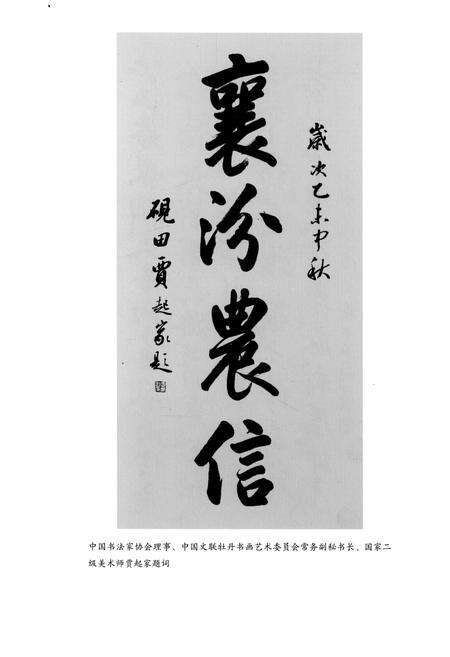 歲次乙未中秋
襄汾農信
硯田賈起家題
中国书法家协会理事、中国文联牡丹书画艺术委员会常务副秘书长、国家二
级美术师贾起家题词